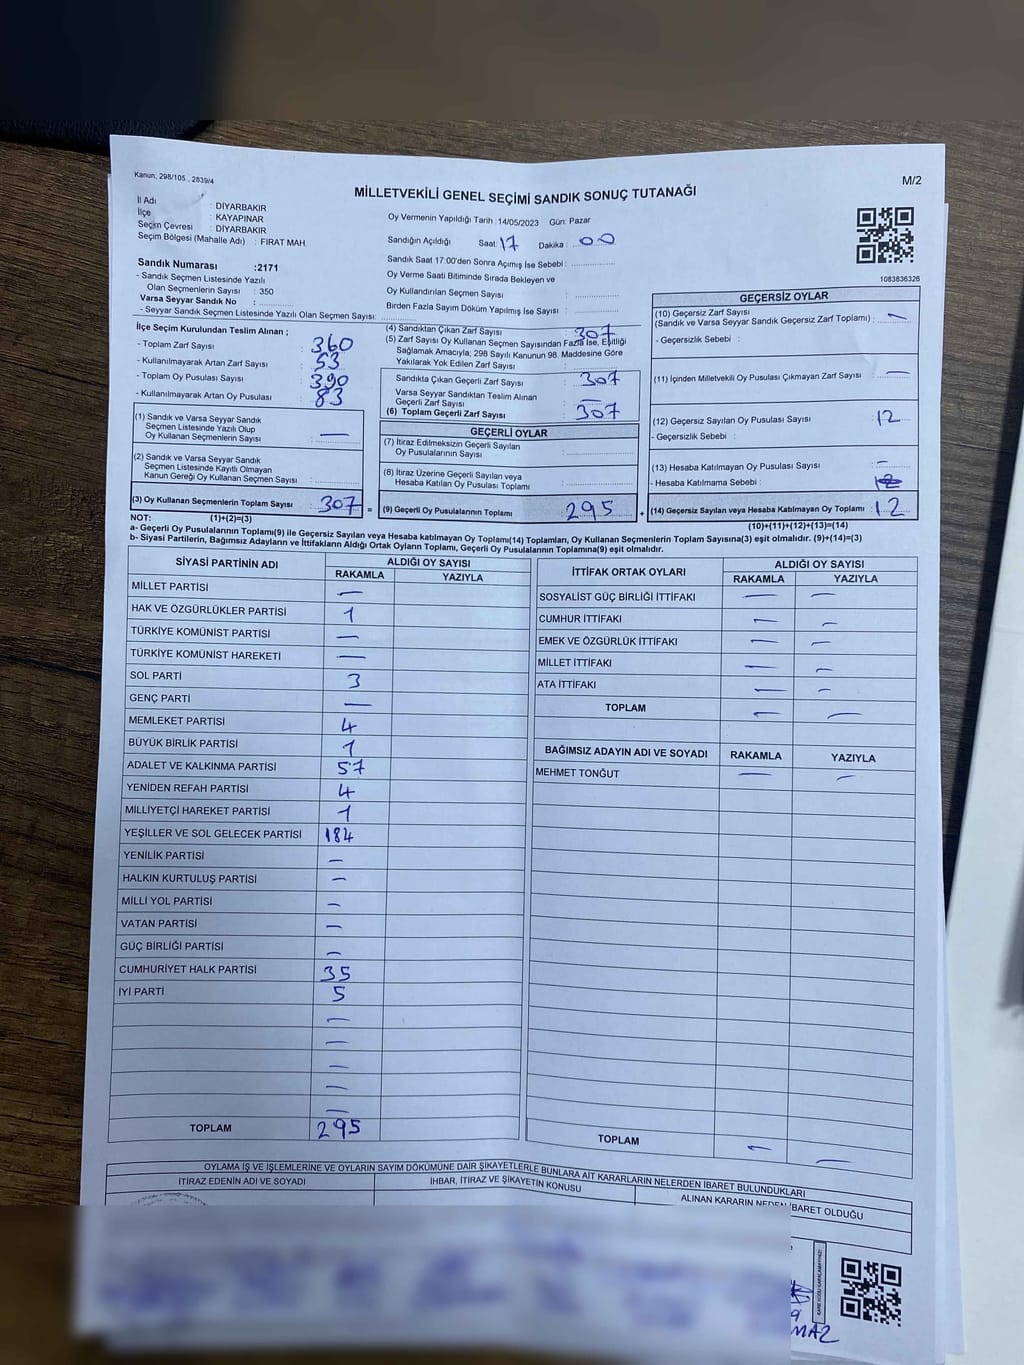 Kanun; 298/105 , 2839/4
MİLLETVEKİLİ GENEL SEÇİMİ SANDIK SONUÇ TUTANAĞI
M/2
İl Adı : DİYARBAKIR
İlçe : KAYAPINAR
Seçim Çevresi : DİYARBAKIR
Seçim Bölgesi (Mahalle Adı) : FIRAT MAH.
Sandık Numarası :2171
- Sandık Seçmen Listesinde Yazılı
Olan Seçmenlerin Sayısı : 350
Varsa Seyyar Sandık No :
- Seyyar Sandık Seçmen Listesinde Yazılı Olan Seçmen Sayısı:
Oy Vermenin Yapıldığı Tarih :14/05/2023 Gün: Pazar
Sandığın Açıldığı Saat: 17 Dakika : 00
Sandık Saat 17:00'den Sonra Açımış İse Sebebi :
Oy Verme Saati Bitiminde Sırada Bekleyen ve
Oy Kullandırılan Seçmen Sayısı :
Birden Fazla Sayım Döküm Yapılmış İse Sayısı :
1083836326
İlçe Seçim Kurulundan Teslim Alınan ;
- Toplam Zarf Sayısı : 360
- Kullanılmayarak Artan Zarf Sayısı : 53
- Toplam Oy Pusulası Sayısı : 390
- Kullanılmayarak Artan Oy Pusulası : 83
(1) Sandık ve Varsa Seyyar Sandık
Seçmen Listesinde Yazılı Olup
Oy Kullanan Seçmenlerin Sayısı : —
(2) Sandık ve Varsa Seyyar Sandık
Seçmen Listesinde Kayıtlı Olmayan
Kanun Gereği Oy Kullanan Seçmen Sayısı :
(3) Oy Kullanan Seçmenlerin Toplam Sayısı : 307 =
(1)+(2)=(3)
(4) Sandıktan Çıkan Zarf Sayısı : 307
(5) Zarf Sayısı Oy Kullanan Seçmen Sayısından Fazla İse, Eşitliği
Sağlamak Amacıyla; 298 Sayılı Kanunun 98. Maddesine Göre
Yakılarak Yok Edilen Zarf Sayısı :
Sandıkta Çıkan Geçerli Zarf Sayısı : 307
Varsa Seyyar Sandıktan Teslim Alınan
Geçerli Zarf Sayısı :
(6) Toplam Geçerli Zarf Sayısı : 307
GEÇERLİ OYLAR
(7) İtiraz Edilmeksizin Geçerli Sayılan
Oy Pusulalarının Sayısı :
(8) İtiraz Üzerine Geçerli Sayılan veya
Hesaba Katılan Oy Pusulası Toplamı :
(9) Geçerli Oy Pusulalarının Toplamı : 295 +
GEÇERSİZ OYLAR
(10) Geçersiz Zarf Sayısı
(Sandık ve Varsa Seyyar Sandık Geçersiz Zarf Toplamı) : —
- Geçersizlik Sebebi :
(11) İçinden Milletvekili Oy Pusulası Çıkmayan Zarf Sayısı : —
(12) Geçersiz Sayılan Oy Pusulası Sayısı : 12
- Geçersizlik Sebebi :
(13) Hesaba Katılmayan Oy Pusulası Sayısı : —
- Hesaba Katılmama Sebebi :
(14) Geçersiz Sayılan veya Hesaba Katılmayan Oy Toplamı : 12
(10)+(11)+(12)+(13)=(14)
NOT:
a- Geçerli Oy Pusulalarının Toplamı(9) ile Geçersiz Sayılan veya Hesaba katılmayan Oy Toplamı(14) Toplamları, Oy Kullanan Seçmenlerin Toplam Sayısına(3) eşit olmalıdır. (9)+(14)=(3)
b- Siyasi Partilerin, Bağımsız Adayların ve İttifakların Aldığı Ortak Oyların Toplamı, Geçerli Oy Pusulalarının Toplamına(9) eşit olmalıdır.
SİYASİ PARTİNİN ADI ALDIĞI OY SAYISI
RAKAMLA YAZIYLA
MİLLET PARTİSİ —
HAK VE ÖZGÜRLÜKLER PARTİSİ 1
TÜRKİYE KOMÜNİST PARTİSİ —
TÜRKİYE KOMÜNİST HAREKETİ —
SOL PARTİ 3
GENÇ PARTİ —
MEMLEKET PARTİSİ 4
BÜYÜK BİRLİK PARTİSİ 1
ADALET VE KALKINMA PARTİSİ 57
YENİDEN REFAH PARTİSİ 4
MİLLİYETÇİ HAREKET PARTİSİ 1
YEŞİLLER VE SOL GELECEK PARTİSİ 184
YENİLİK PARTİSİ —
HALKIN KURTULUŞ PARTİSİ —
MİLLİ YOL PARTİSİ —
VATAN PARTİSİ —
GÜÇ BİRLİĞİ PARTİSİ —
CUMHURİYET HALK PARTİSİ 35
İYİ PARTİ 5
—
—
—
—
—
TOPLAM 295
İTTİFAK ORTAK OYLARI ALDIĞI OY SAYISI
RAKAMLA YAZIYLA
SOSYALİST GÜÇ BİRLİĞİ İTTİFAKI — —
CUMHUR İTTİFAKI — —
EMEK VE ÖZGÜRLÜK İTTİFAKI — —
MİLLET İTTİFAKI — —
ATA İTTİFAKI — —
TOPLAM — —
BAĞIMSIZ ADAYIN ADI VE SOYADI RAKAMLA YAZIYLA
MEHMET TONĞUT — —
TOPLAM — —
OYLAMA İŞ VE İŞLEMLERİNE VE OYLARIN SAYIM DÖKÜMÜNE DAİR ŞİKAYETLERLE BUNLARA AİT KARARLARIN NELERDEN İBARET BULUNDUKLARI
İTİRAZ EDENİN ADI VE SOYADI İHBAR, İTİRAZ VE ŞİKAYETİN KONUSU ALINAN KARARIN NEDEN İBARET OLDUĞU